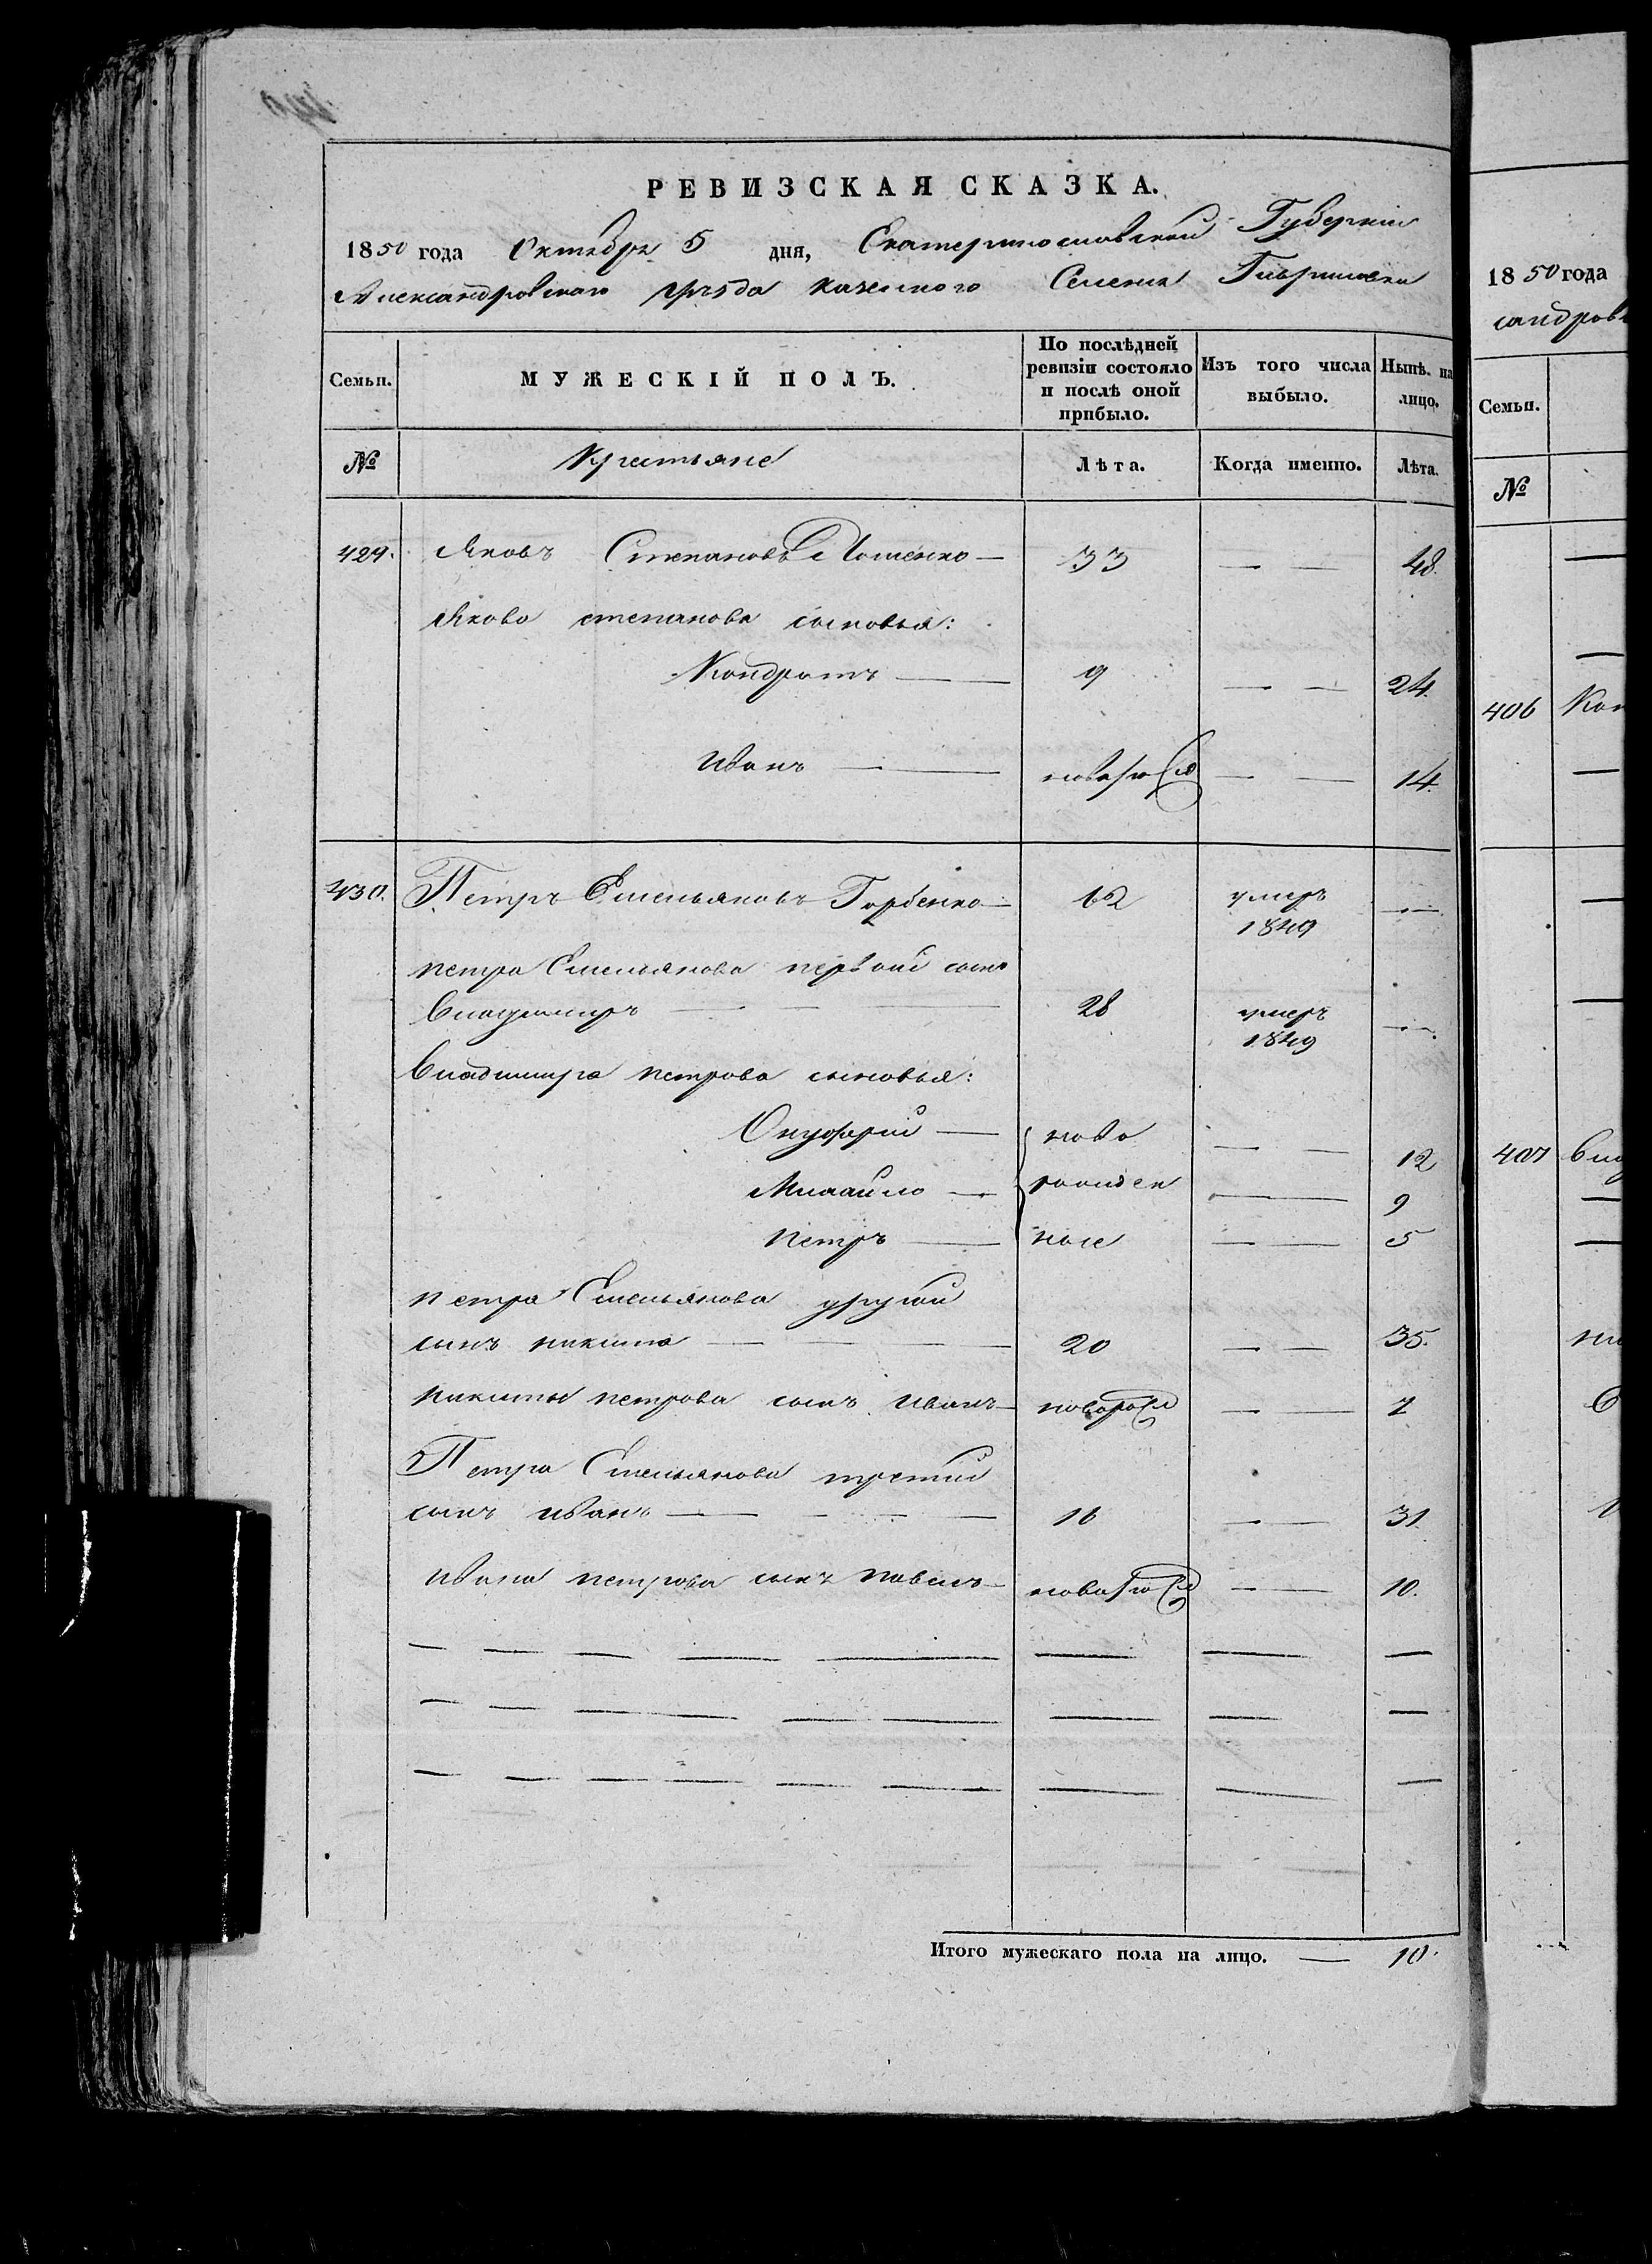 РЕВИЗСКАЯ СКАЗКА.
1850 года Октября 5 дня, Екатеринославской Губерніи
Александровскаго уѣзда казенного Селенія Гавриловки
Семьи. МУЖЕСКІЙ ПОЛЪ. По послѣдней ревизіи состояло и послѣ оной прибыло. Изъ того числа выбыло. Нынѣ на лицо.
№ Крестьяне Лѣта. Когда именно. Лѣта.
429. Яковъ Степановъ 33 — — 48.
Якова степанова сыновья:
Кондратъ — 9 — — 24.
Иванъ — — 14.
430. Петръ Емельяновъ Горбенко — 62 умеръ 1849 —
петра Емельянова первый сынъ
Владимиръ — — 28 умеръ 1849 —
Владимира петрова сыновья:
Онуфрій — ново — — 12
Михайло — рожден — 9
петръ — ные — — 5
петра Емельянова другой
сынъ никита — — — 20 — — 35.
никиты петрова сынъ иванъ — — — 7
Петра Емельянова третий
сынъ иванъ — — — — 16 — — 31
ивана петрова сынъ павелъ — — — 10.
Итого мужескаго пола на лицо. — 10.
1850 года
сандровс
Семьи.
№
406 Кон
407 Вла